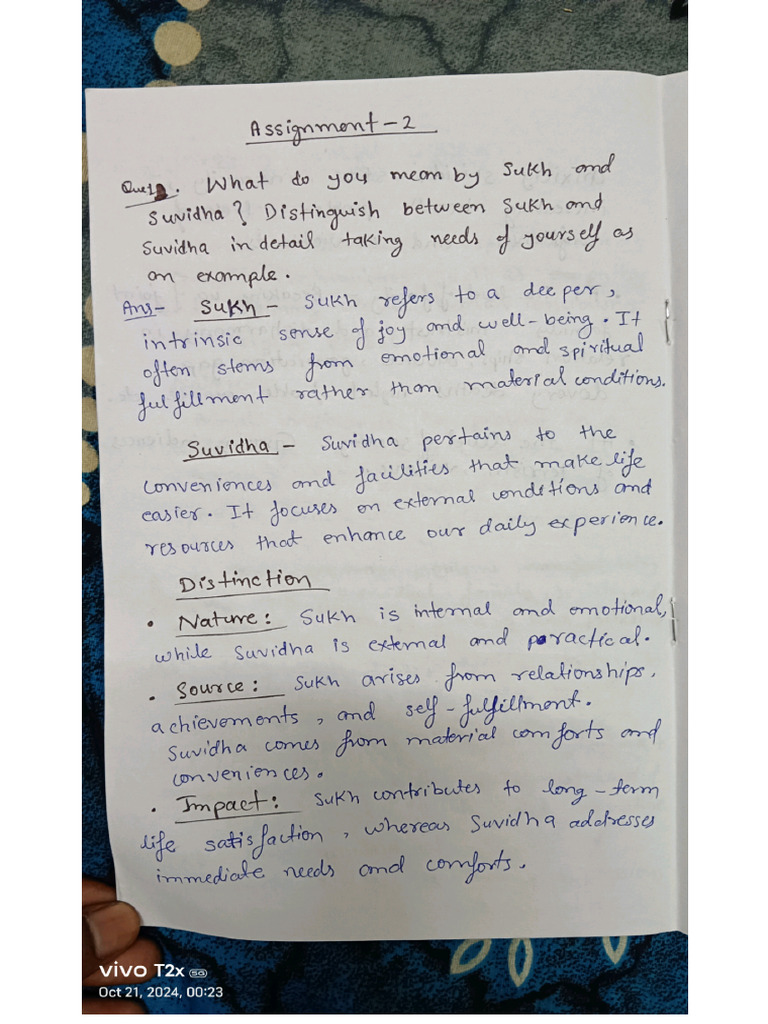 Assignment-2
Que1. What do you mean by Sukh and
Suvidha? Distinguish between Sukh and
Suvidha in detail taking needs of yourself as
an example.
Ans- Sukh - Sukh refers to a deeper,
intrinsic sense of joy and well-being. It
often stems from emotional and spiritual
fulfillment rather than material conditions.
Suvidha - Suvidha pertains to the
conveniences and facilities that make life
easier. It focuses on external conditions and
resources that enhance our daily experience.
Distinction
• Nature: Sukh is internal and emotional,
while Suvidha is external and practical.
• Source: Sukh arises from relationships,
achievements, and self-fulfillment.
Suvidha comes from material comforts and
conveniences.
• Impact: Sukh contributes to long-term
life satisfaction, whereas Suvidha addresses
immediate needs and comforts.
vivo T2x 5G
Oct 21, 2024, 00:23